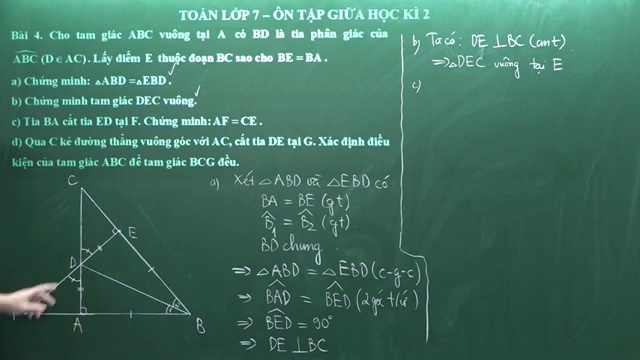 TOÁN LỚP 7 – ÔN TẬP GIỮA HỌC KÌ 2
Bài 4. Cho tam giác ABC vuông tại A có BD là tia phân giác của
ABC (D ∈ AC). Lấy điểm E thuộc đoạn BC sao cho BE = BA.
a) Chứng minh: △ABD = △EBD.
b) Chứng minh tam giác DEC vuông.
c) Tia BA cắt tia ED tại F. Chứng minh: AF = CE.
d) Qua C kẻ đường thẳng vuông góc với AC, cắt tia DE tại G. Xác định điều
kiện của tam giác ABC để tam giác BCG đều.
C
E
D
A
B
a) Xét △ABD và △EBD có
BA = BE (gt)
B̂1 = B̂2 (gt)
BD chung
⇒ △ABD = △EBD (c-g-c)
⇒ BAD = BED (2 góc t/ư)
⇒ BED = 90°
⇒ DE ⊥ BC
b) Ta có: DE ⊥ BC (cmt)
⇒ △DEC vuông tại E
c)